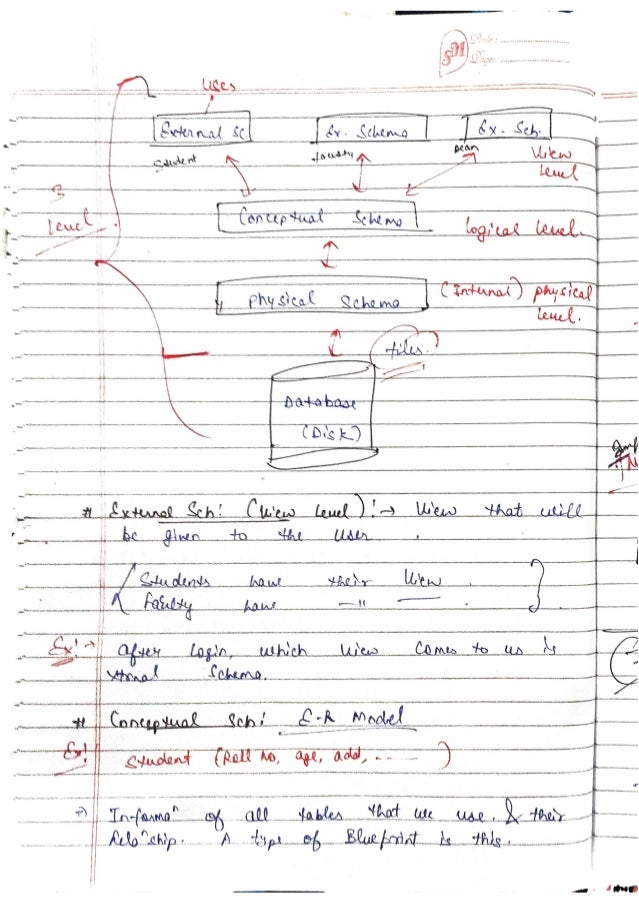 SM Date:
Page:
Uses
External Sc Ex. Schema Ex. Sch.
Student faculty Dean View
level
3
level
Conceptual Schema Logical level.
Physical Schema (Internal) physical
level.
files.
Database
(Disk)
# External Sch: (View level):→ View that will
be given to the user.
Students have their View.
Faculty have —"—
Ex:→ after login, which view comes to us is
xtrnal Schema.
# Conceptual Sch: E-R Model
Ex: Student (Roll no, age, add, ------)
⇒ Informaⁿ of all tables that we use & their
Relaⁿship. A type of Blueprint is this.